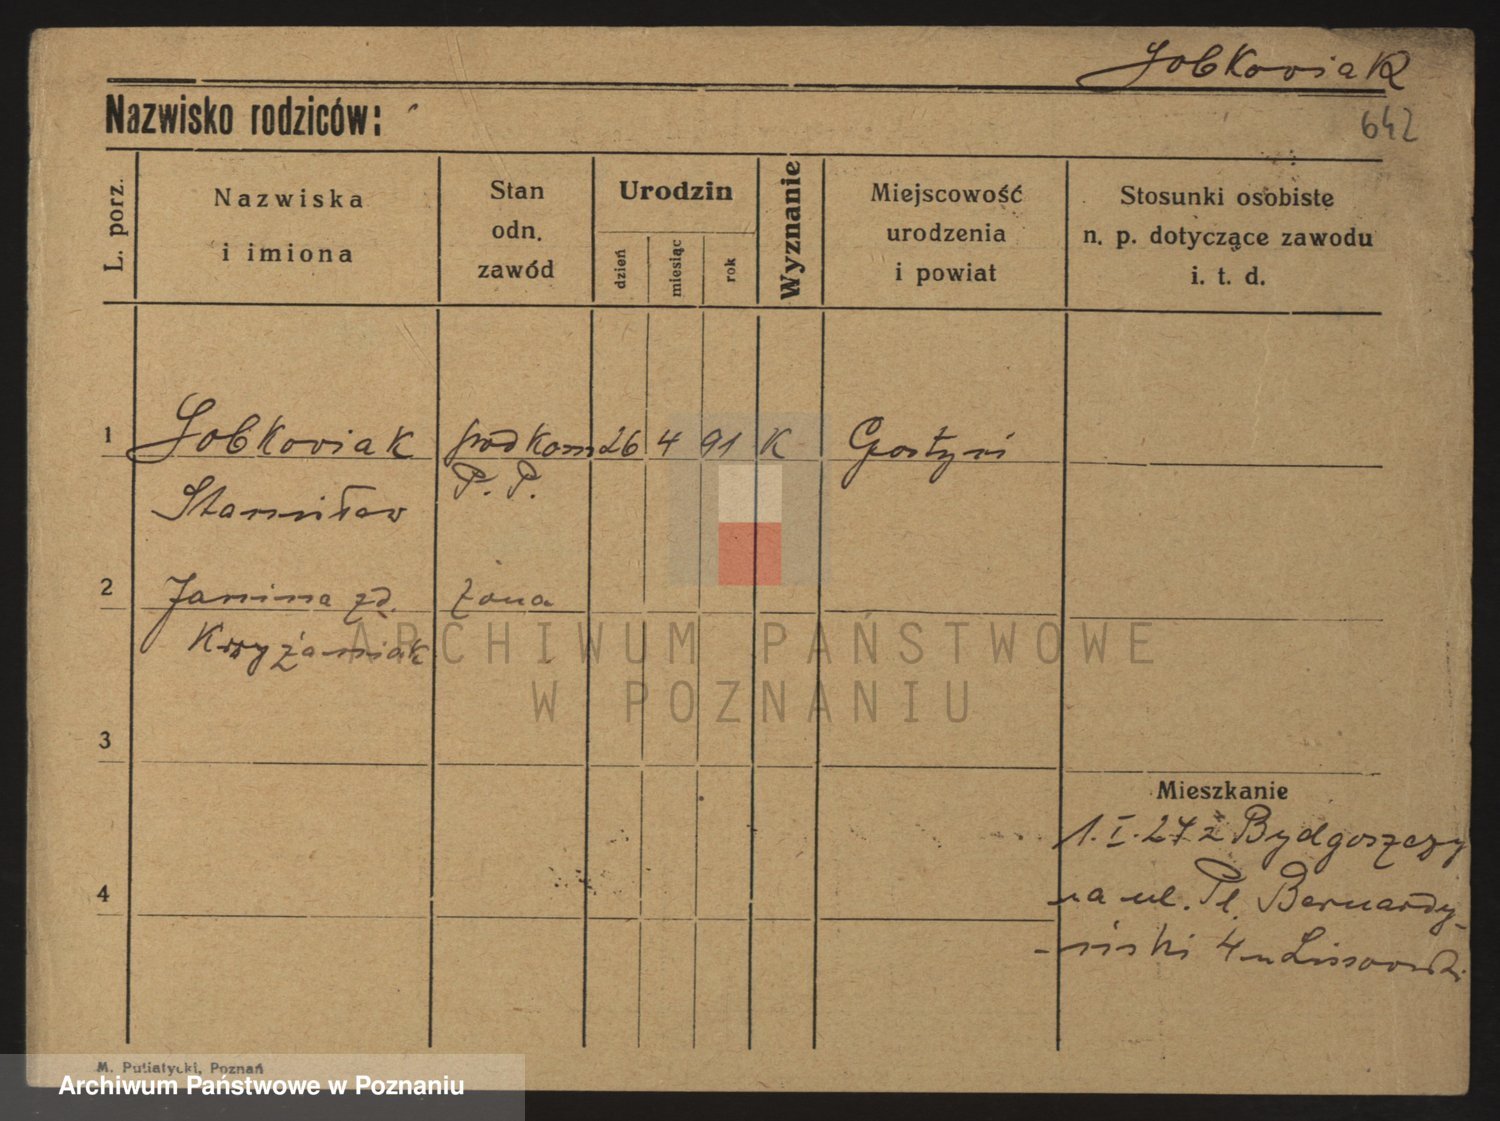 Sobkowiak
Nazwisko rodziców:
642
L. porz.
Nazwiska
i imiona
Stan
odn.
zawód
Urodzin
dzień
miesiąc
rok
Wyznanie
Miejscowość
urodzenia
i powiat
Stosunki osobiste
n. p. dotyczące zawodu
i. t. d.
1
Sobkowiak
podkom
26
4
91
K
Gostyń
P. P.
Stanisław
2
Janina zd.
żona
Krzyżaniak
ARCHIWUM PAŃSTWOWE
W POZNANIU
3
Mieszkanie
1. I. 27 z Bydgoszczy
4
na ul. Pl. Bernardy-
-ński 4 u
M. Putiatycki, Poznań
Archiwum Państwowe w Poznaniu